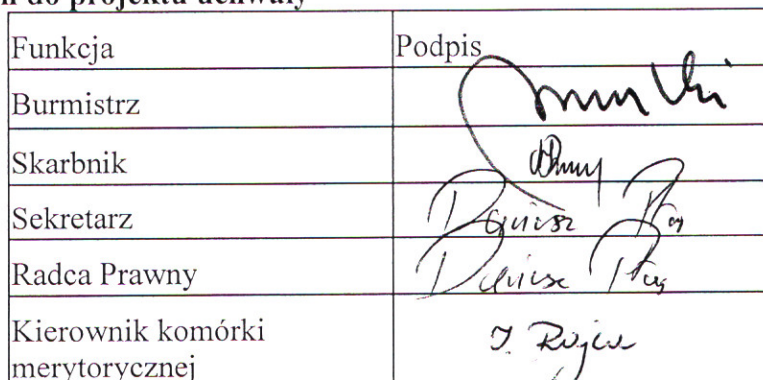 do projektu uchwały
Funkcja Podpis
Burmistrz
Skarbnik
Sekretarz Dariusz
Radca Prawny Dariusz
Kierownik komórki
merytorycznej